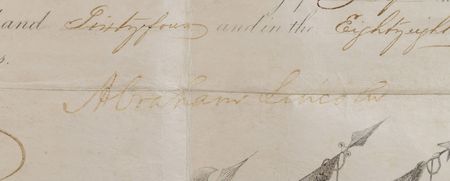 and Sixty four and in the Eighty eight
s.
Abraham Lincoln